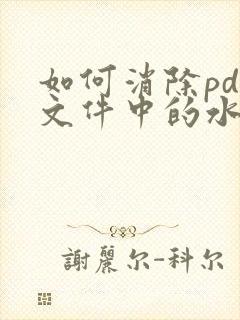 如何消除pd
文件中的水
謝麗尔-科尔